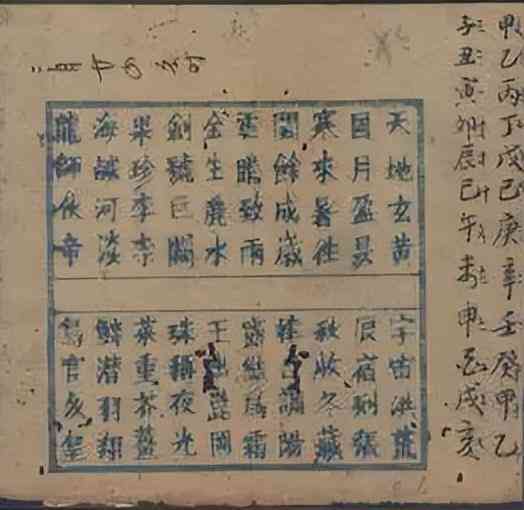 甲乙丙丁戊己庚辛壬癸甲乙
子丑寅卯辰巳午未申酉戌亥
天地玄黃
宇宙洪荒
日月盈昃
辰宿列張
寒來暑往
秋收冬藏
閏餘成歲
律呂調陽
雲騰致雨
露結爲霜
金生麗水
玉出崑岡
劍號巨闕
珠稱夜光
果珍李柰
菜重芥薑
海鹹河淡
鱗潛羽翔
龍師火帝
鳥官人皇